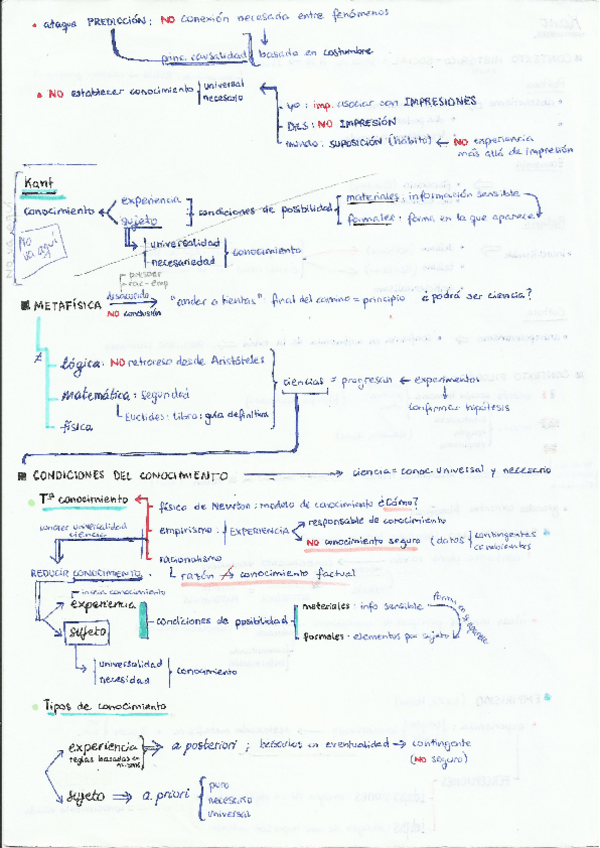 • ataque PREDICCIÓN: NO conexión necesaria entre fenómenos
princ. causalidad basado en costumbre
• NO establecer conocimiento universal
necesario
yo: imp. asociar con IMPRESIONES
DIOS: NO IMPRESIÓN
mundo: SUPOSICIÓN (hábito) ← NO experiencia
más allá de impresión
Kant
conocimiento experiencia
sujeto
condiciones de posibilidad materiales: información sensible
formales: forma en la que aparece
NO VA AQUÍ
No va aquí
universalidad
necesariedad
conocimiento
METAFÍSICA desacuerdo rac-emp
NO conclusión
"andar a tientas" final del camino = principio ¿podrá ser ciencia?
≠
Lógica: NO retroceso desde Aristóteles
matemática: seguridad
Euclides: Libro: guía definitiva
física
ciencias = progresan ← experimentos
confirmar hipótesis
CONDICIONES DEL CONOCIMIENTO → ciencia = conoc. universal y necesario
Tª conocimiento
física de Newton: modelo de conocimiento ¿Cómo?
empirismo: EXPERIENCIA responsable de conocimiento
NO conocimiento seguro (datos contingentes
cambiantes
racionalismo
razón conocimiento factual
conocer universalidad
ciencia
REDUCIR CONOCIMIENTO.
inicia conocimiento
experiencia
sujeto
condiciones de posibilidad
materiales: info sensible
formales: elementos por sujeto
forma en q aparece
universalidad
necesidad
conocimiento
• Tipos de conocimiento
experiencia ⇒ a posteriori; basarlos en eventualidad → contingente
reglas basadas en
(NO seguro)
sujeto ⇒ a priori puro
necesario
universal